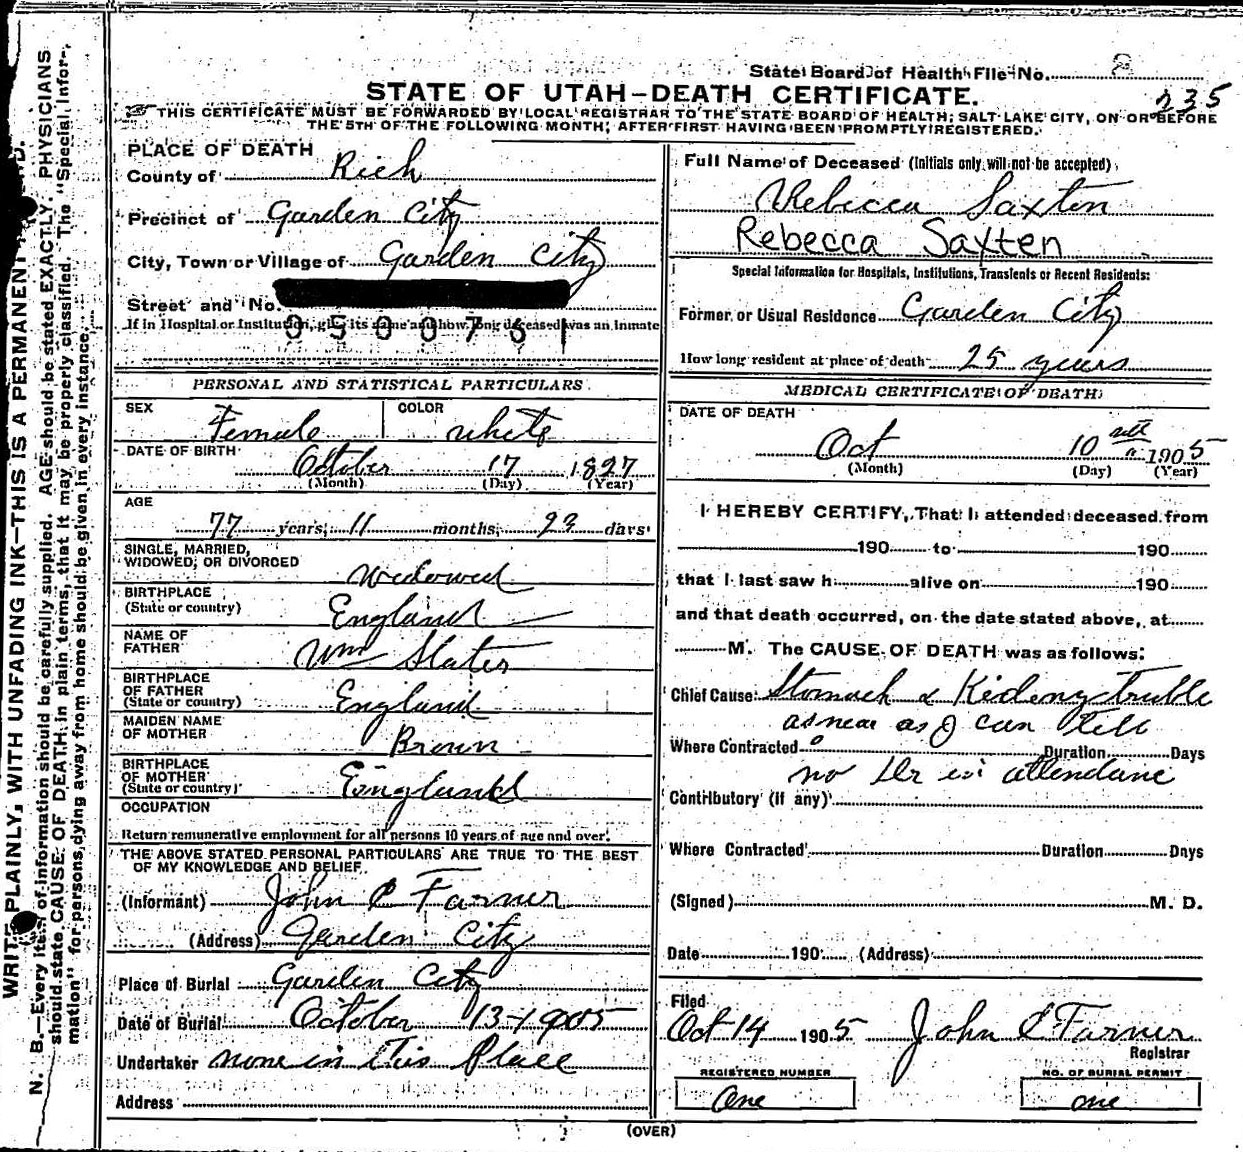 State Board of Health File No. 2
235
STATE OF UTAH—DEATH CERTIFICATE.
THIS CERTIFICATE MUST BE FORWARDED BY LOCAL REGISTRAR TO THE STATE BOARD OF HEALTH, SALT LAKE CITY, ON OR BEFORE
THE 5TH OF THE FOLLOWING MONTH, AFTER FIRST HAVING BEEN PROMPTLY REGISTERED.
PLACE OF DEATH
County of Rich
Precinct of Garden City
City, Town or Village of Garden City
Street and No.
If in Hospital or Institution, give its name and how long deceased was an Inmate
0500761
PERSONAL AND STATISTICAL PARTICULARS.
SEX Female COLOR white
DATE OF BIRTH October 17 1827
(Month) (Day) (Year)
AGE
77 years, 11 months, 23 days
SINGLE, MARRIED,
WIDOWED, OR DIVORCED Widowed
BIRTHPLACE
(State or country) England
NAME OF
FATHER Wm Slater
BIRTHPLACE
OF FATHER
(State or country) England
MAIDEN NAME
OF MOTHER Brown
BIRTHPLACE
OF MOTHER
(State or country) England
OCCUPATION
Return remunerative employment for all persons 10 years of age and over.
THE ABOVE STATED PERSONAL PARTICULARS ARE TRUE TO THE BEST
OF MY KNOWLEDGE AND BELIEF.
(Informant) John C Farner
(Address) Garden City
Place of Burial Garden City
Date of Burial October 13-1905
Undertaker none in this Place
Address
Full Name of Deceased (Initials only will not be accepted)
Rebicca Saxten
Rebecca Saxten
Special Information for Hospitals, Institutions, Transients or Recent Residents:
Former or Usual Residence Garden City
How long resident at place of death 25 years
MEDICAL CERTIFICATE OF DEATH
DATE OF DEATH
Oct 10 1905
(Month) (Day) (Year)
I HEREBY CERTIFY, That I attended deceased from
190 to 190
that I last saw h alive on 190
and that death occurred, on the date stated above, at
M. The CAUSE OF DEATH was as follows:
Chief Cause Stomach & Kideny truble
as near as I can tell
Where Contracted Duration Days
no Dr in attendanc
Contributory (if any)
Where Contracted Duration Days
(Signed) M. D.
Date 190 (Address)
Filed
Oct 14 1905 John C Farner
Registrar
REGISTERED NUMBER
One
NO. OF BURIAL PERMIT
one
(OVER)
WRITE PLAINLY, WITH UNFADING INK—THIS IS A PERMANENT
N. B.—Every item of information should be carefully supplied. AGE should be stated EXACTLY. PHYSICIANS
should state CAUSE OF DEATH in plain terms, that it may be properly classified. The "Special Infor-
mation" for persons dying away from home should be given in every instance.